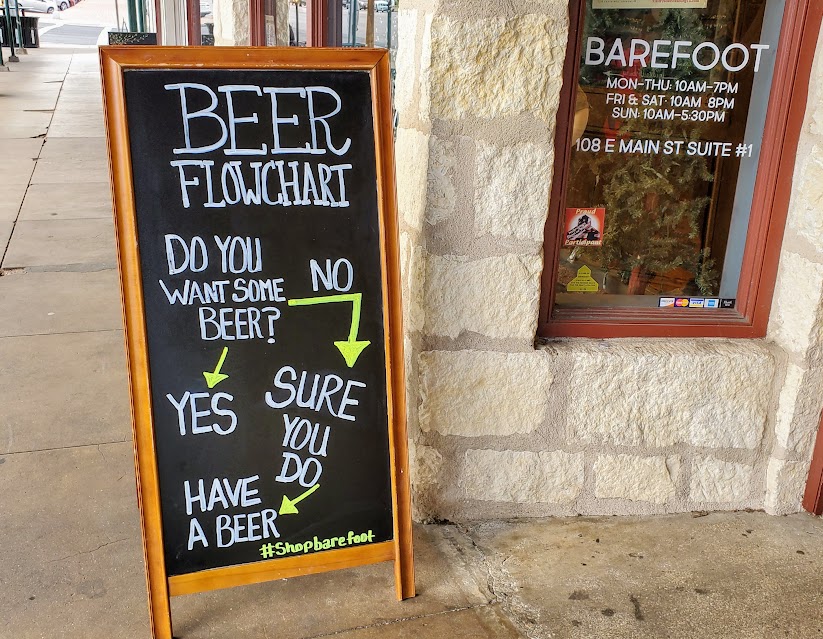 BEER
FLOWCHART
DO YOU
WANT SOME
BEER?
NO
YES
SURE
YOU
DO
HAVE
A BEER
#Shopbarefoot
BAREFOOT
MON-THU: 10AM-7PM
FRI & SAT: 10AM 8PM
SUN: 10AM-5:30PM
108 E MAIN ST SUITE #1
Proud
Participant